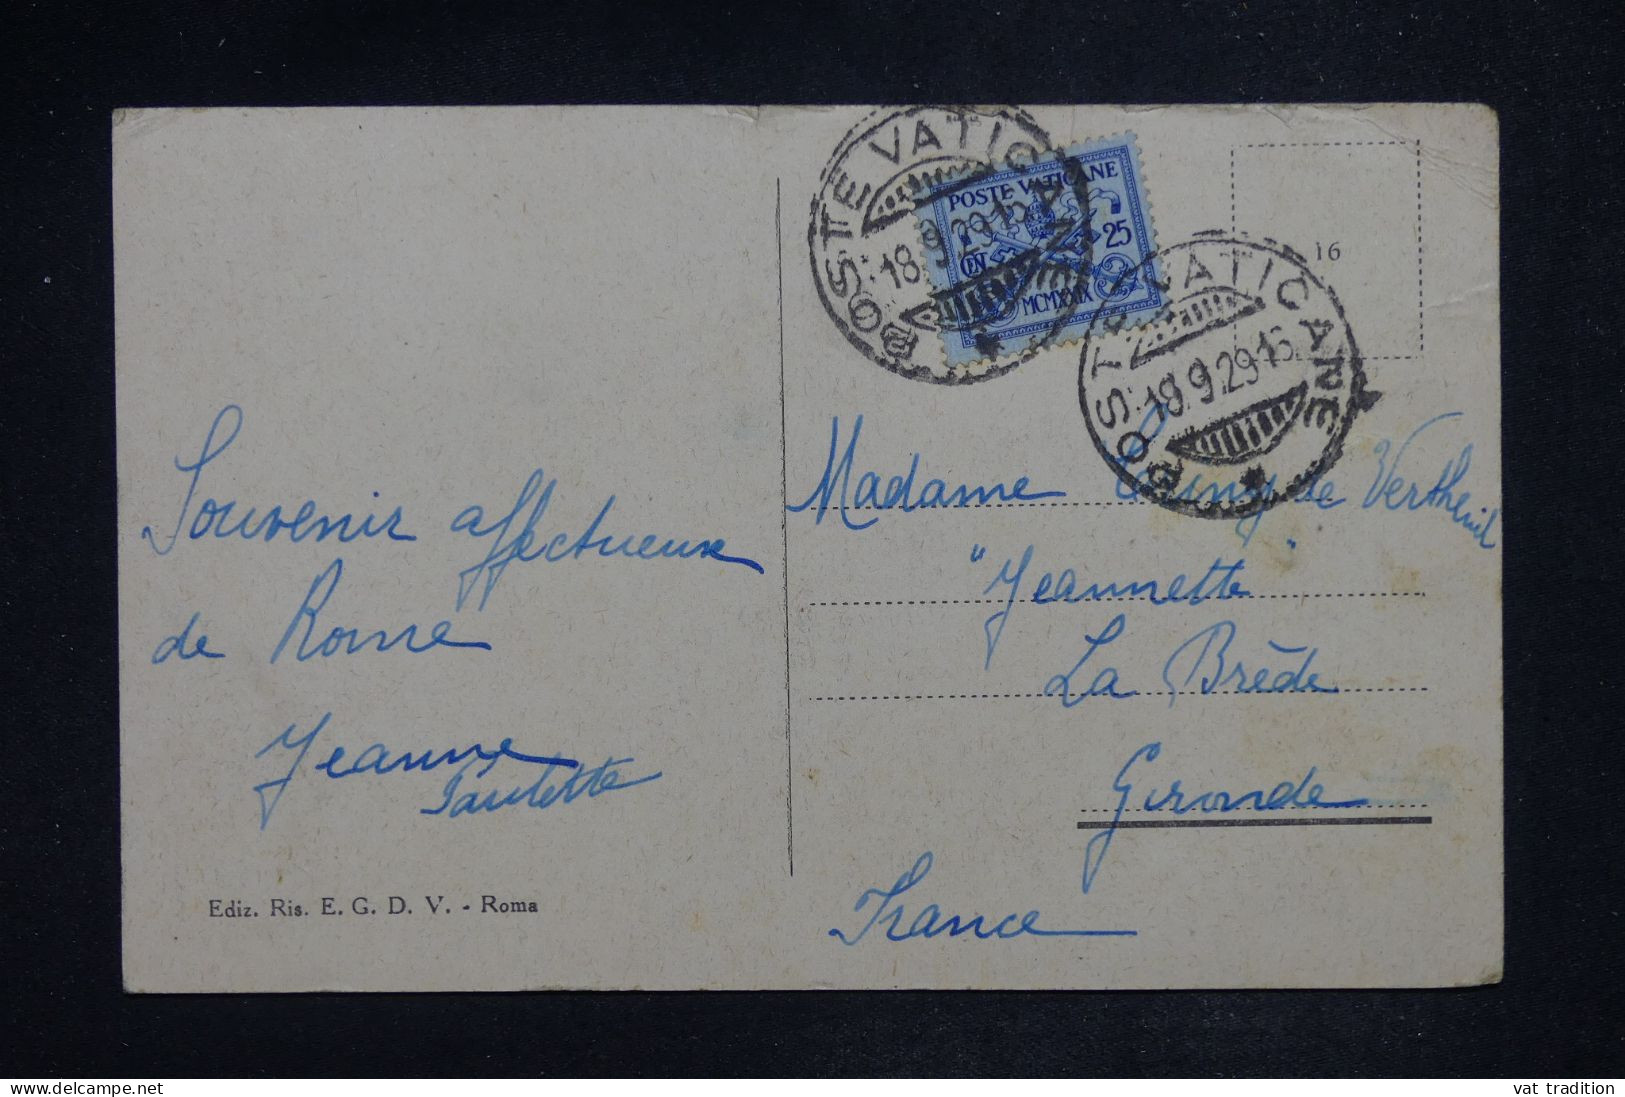 POSTE VATICANE
18.9.29.15
POSTE VATICANE
25
CENT
MCMXXIX
POSTE VATICANE
18.9.29.15
16
Souvenir affectueux
de Rome
Jeanne
Paulette
Ediz. Ris. E. G. D. V. - Roma
Madame de Vertheuil
"Jeannette"
La Brède
Gironde
France
delcampe.net
vat tradition